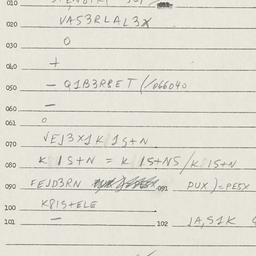 010
020 VAS3RLAL3X
030 O
040 +
050 - Q1B3RPET (/066040
060 -
061 O
070 VEJ3X1K 1S+N
080 K 1S+N = K 1S+NS / K 1S+N
090 FEJD3RN 091 PUX)=PE5X
100 K81S+ELE
101 - 102 JA,S1K